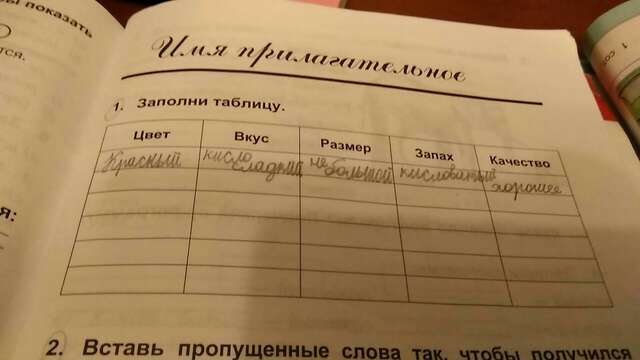 ы показать
тся.
Имя прилагательное
1. Заполни таблицу.
Цвет Вкус Размер Запах Качество
Красный кисло сладкий не большой кисловатый хорошее
я:
2. Вставь пропущенные слова так, чтобы получился